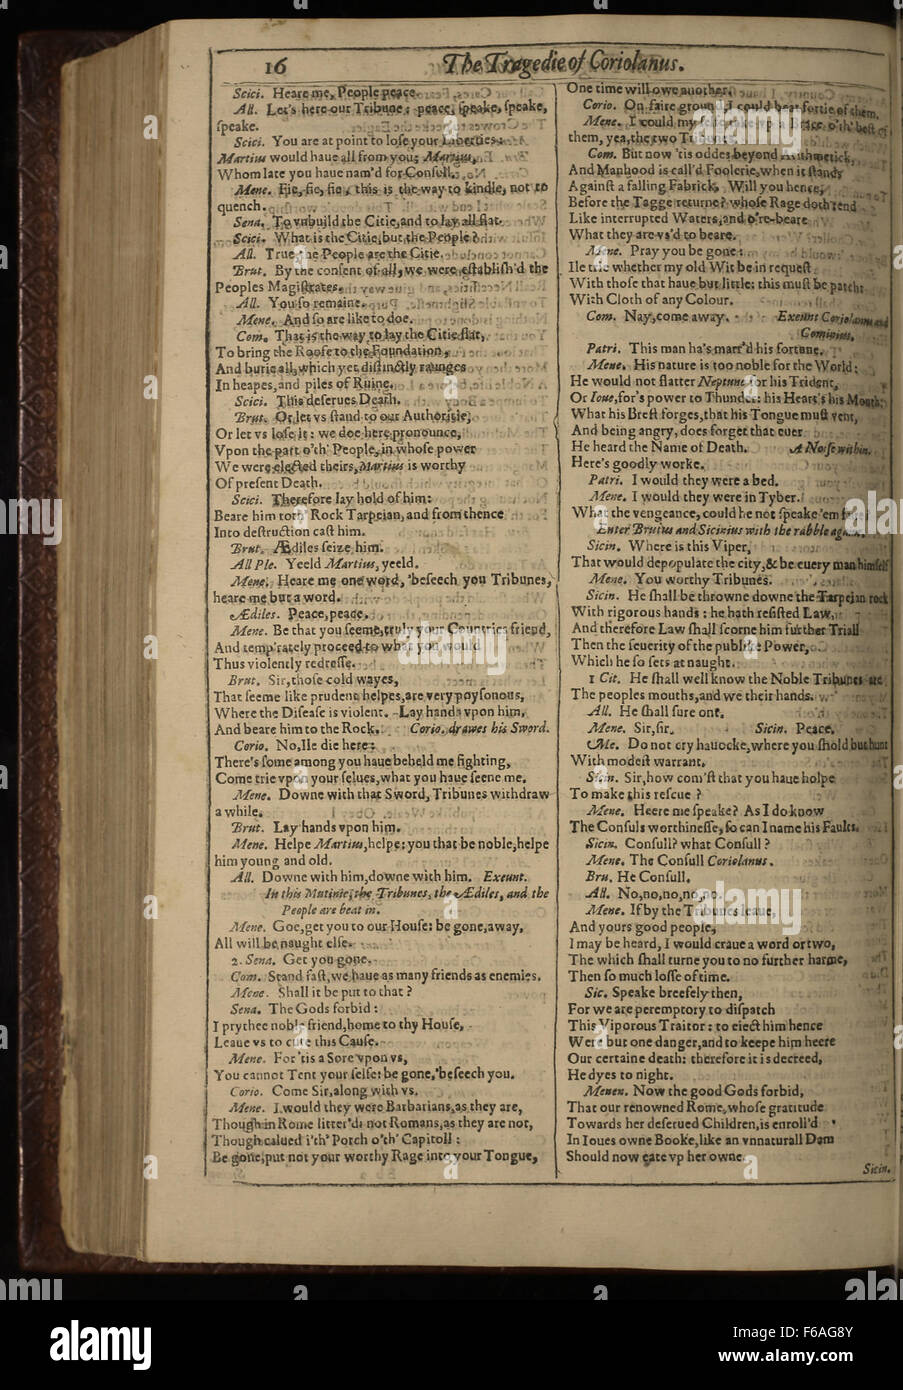 16 The Tragedie of Coriolanus.
Scici. Heare me, People peace.
All. Let's here our Tribune: peace, ſpeake, ſpeake,
ſpeake.
Scici. You are at point to loſe your Liberties:
Martius would haue all from you; Martius,
Whom late you haue nam'd for Conſull.
Mene. Fie, fie, fie, this is the way to kindle, not to
quench.
Sena. To vnbuild the Citie, and to lay all flat.
Scici. What is the Citie, but the People?
All. True, the People are the Citie.
Brut. By the conſent of all, we were eſtabliſh'd the
Peoples Magiſtrates.
All. You ſo remaine.
Mene. And ſo are like to doe.
Com. That is the way to lay the Citie flat,
To bring the Roofe to the Foundation,
And burie all, which yet diſtinctly raunges
In heapes, and piles of Ruine.
Scici. This deſerues Death.
Brut. Or let vs ſtand to our Authoritie,
Or let vs loſe it: we doe here pronounce,
Vpon the part o'th' People, in whoſe power
We were elected theirs, Martius is worthy
Of preſent Death.
Scici. Therefore lay hold of him:
Beare him toth' Rock Tarpeian, and from thence
Into deſtruction caſt him.
Brut. Ædiles ſeize him.
All Ple. Yeeld Martius, yeeld.
Mene. Heare me one word, 'beſeech you Tribunes,
heare me but a word.
Ædiles. Peace, peace.
Mene. Be that you ſeeme, truly your Countries friend,
And temp'rately proceed to what you would
Thus violently redreſſe.
Brut. Sir, thoſe cold wayes,
That ſeeme like prudent helpes, are very poyſonous,
Where the Diſeaſe is violent. Lay hands vpon him,
And beare him to the Rock. Corio. drawes his Sword.
Corio. No, Ile die here:
There's ſome among you haue beheld me fighting,
Come trie vpon your ſelues, what you haue ſeene me.
Mene. Downe with that Sword, Tribunes withdraw
a while.
Brut. Lay hands vpon him.
Mene. Helpe Martius, helpe: you that be noble, helpe
him young and old.
All. Downe with him, downe with him. Exeunt.
In this Mutinie, the Tribunes, the Ædiles, and the
People are beat in.
Mene. Goe, get you to our Houſe: be gone, away,
All will be naught elſe.
2. Sena. Get you gone.
Com. Stand faſt, we haue as many friends as enemies.
Mene. Shall it be put to that?
Sena. The Gods forbid:
I prythee noble friend, home to thy Houſe,
Leaue vs to cure this Cauſe.
Mene. For 'tis a Sore vpon vs,
You cannot Tent your ſelfe: be gone, 'beſeech you.
Corio. Come Sir, along with vs.
Mene. I would they were Barbarians, as they are,
Though in Rome litter'd: not Romans, as they are not,
Though calued i'th' Porch o'th' Capitoll:
Be gone, put not your worthy Rage into your Tongue,
One time will owe another.
Corio. On faire ground I could beat fortie of them.
Mene. I could my ſelfe take vp a Brace o'th' beſt of
them, yea, the two Tribunes.
Com. But now 'tis oddes beyond Arithmetick,
And Manhood is call'd Foolerie, when it ſtands
Againſt a falling Fabrick. Will you hence,
Before the Tagge returne? whoſe Rage doth rend
Like interrupted Waters, and o're-beare
What they are vs'd to beare.
Mene. Pray you be gone:
Ile trie whether my old Wit be in requeſt
With thoſe that haue but little: this muſt be patcht
With Cloth of any Colour.
Com. Nay, come away. Exeunt Coriolanus and
Cominius.
Patri. This man ha's marr'd his fortune.
Mene. His nature is too noble for the World:
He would not flatter Neptune for his Trident,
Or Ioue, for's power to Thunder: his Heart's his Mouth:
What his Breſt forges, that his Tongue muſt vent,
And being angry, does forget that euer
He heard the Name of Death. A Noiſe within.
Here's goodly worke.
Patri. I would they were a bed.
Mene. I would they were in Tyber.
What the vengeance, could he not ſpeake 'em faire?
Enter Brutus and Sicinius with the rabble againe.
Sicin. Where is this Viper,
That would depopulate the city, & be euery man himſelf
Mene. You worthy Tribunes.
Sicin. He ſhall be throwne downe the Tarpeian rock
With rigorous hands: he hath reſiſted Law,
And therefore Law ſhall ſcorne him further Triall
Then the ſeuerity of the publike Power,
Which he ſo ſets at naught.
1 Cit. He ſhall well know the Noble Tribunes are
The peoples mouths, and we their hands.
All. He ſhall ſure ont.
Mene. Sir, ſir. Sicin. Peace.
Me. Do not cry hauocke, where you ſhold but hunt
With modeſt warrant.
Sicin. Sir, how com'ſt that you haue holpe
To make this reſcue?
Mene. Heere me ſpeake? As I do know
The Conſuls worthineſſe, ſo can I name his Faults.
Sicin. Conſull? what Conſull?
Mene. The Conſull Coriolanus.
Bru. He Conſull.
All. No, no, no, no, no.
Mene. If by the Tribunes leaue,
And yours good people,
I may be heard, I would craue a word or two,
The which ſhall turne you to no further harme,
Then ſo much loſſe of time.
Sic. Speake breefely then,
For we are peremptory to diſpatch
This Viporous Traitor: to eiect him hence
Were but one danger, and to keepe him heere
Our certaine death: therefore it is decreed,
He dyes to night.
Menen. Now the good Gods forbid,
That our renowned Rome, whoſe gratitude
Towards her deſerued Children, is enroll'd
In Ioues owne Booke, like an vnnaturall Dam
Should now eate vp her owne.
Sicin.
alamy
alamy
Image ID: F6AG8Y
www.alamy.com